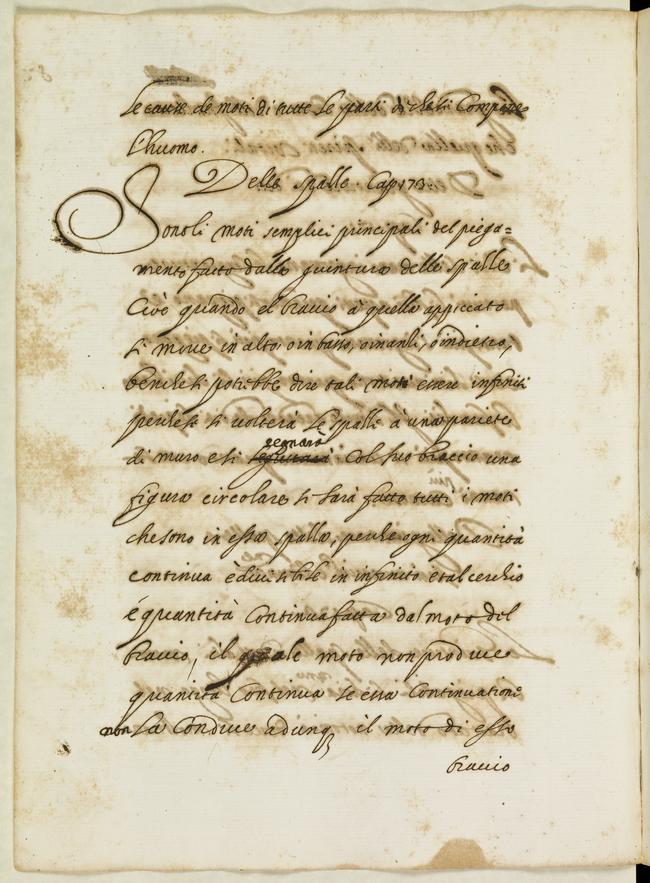 le cause de moti di tutte le parti di che si Compone
l'huomo.
Delle spalle Cap 173.
Sono li moti semplici principali del piega=
mento fatto dalla giuntura delle spalle
Cioè quando el braccio à quella appiccato
si move in alto, o in basso, o inanti, o indietro,
benche si potrebbe dire tali moti essere infiniti
perche se si volterà le spalle à una pariete
di muro e si segnarà col suo braccio una
figura circolare si sarà fatto tutti i moti
che sono in essa spalla, perche ogni quantità
continua è divisibile in infinito e tal cerchio
è quantità Continua fatta dal moto del
braccio, il quale moto non produce
quantità Continua se essa Continuatione
non La Conduce adunq il moto di esso
braccio